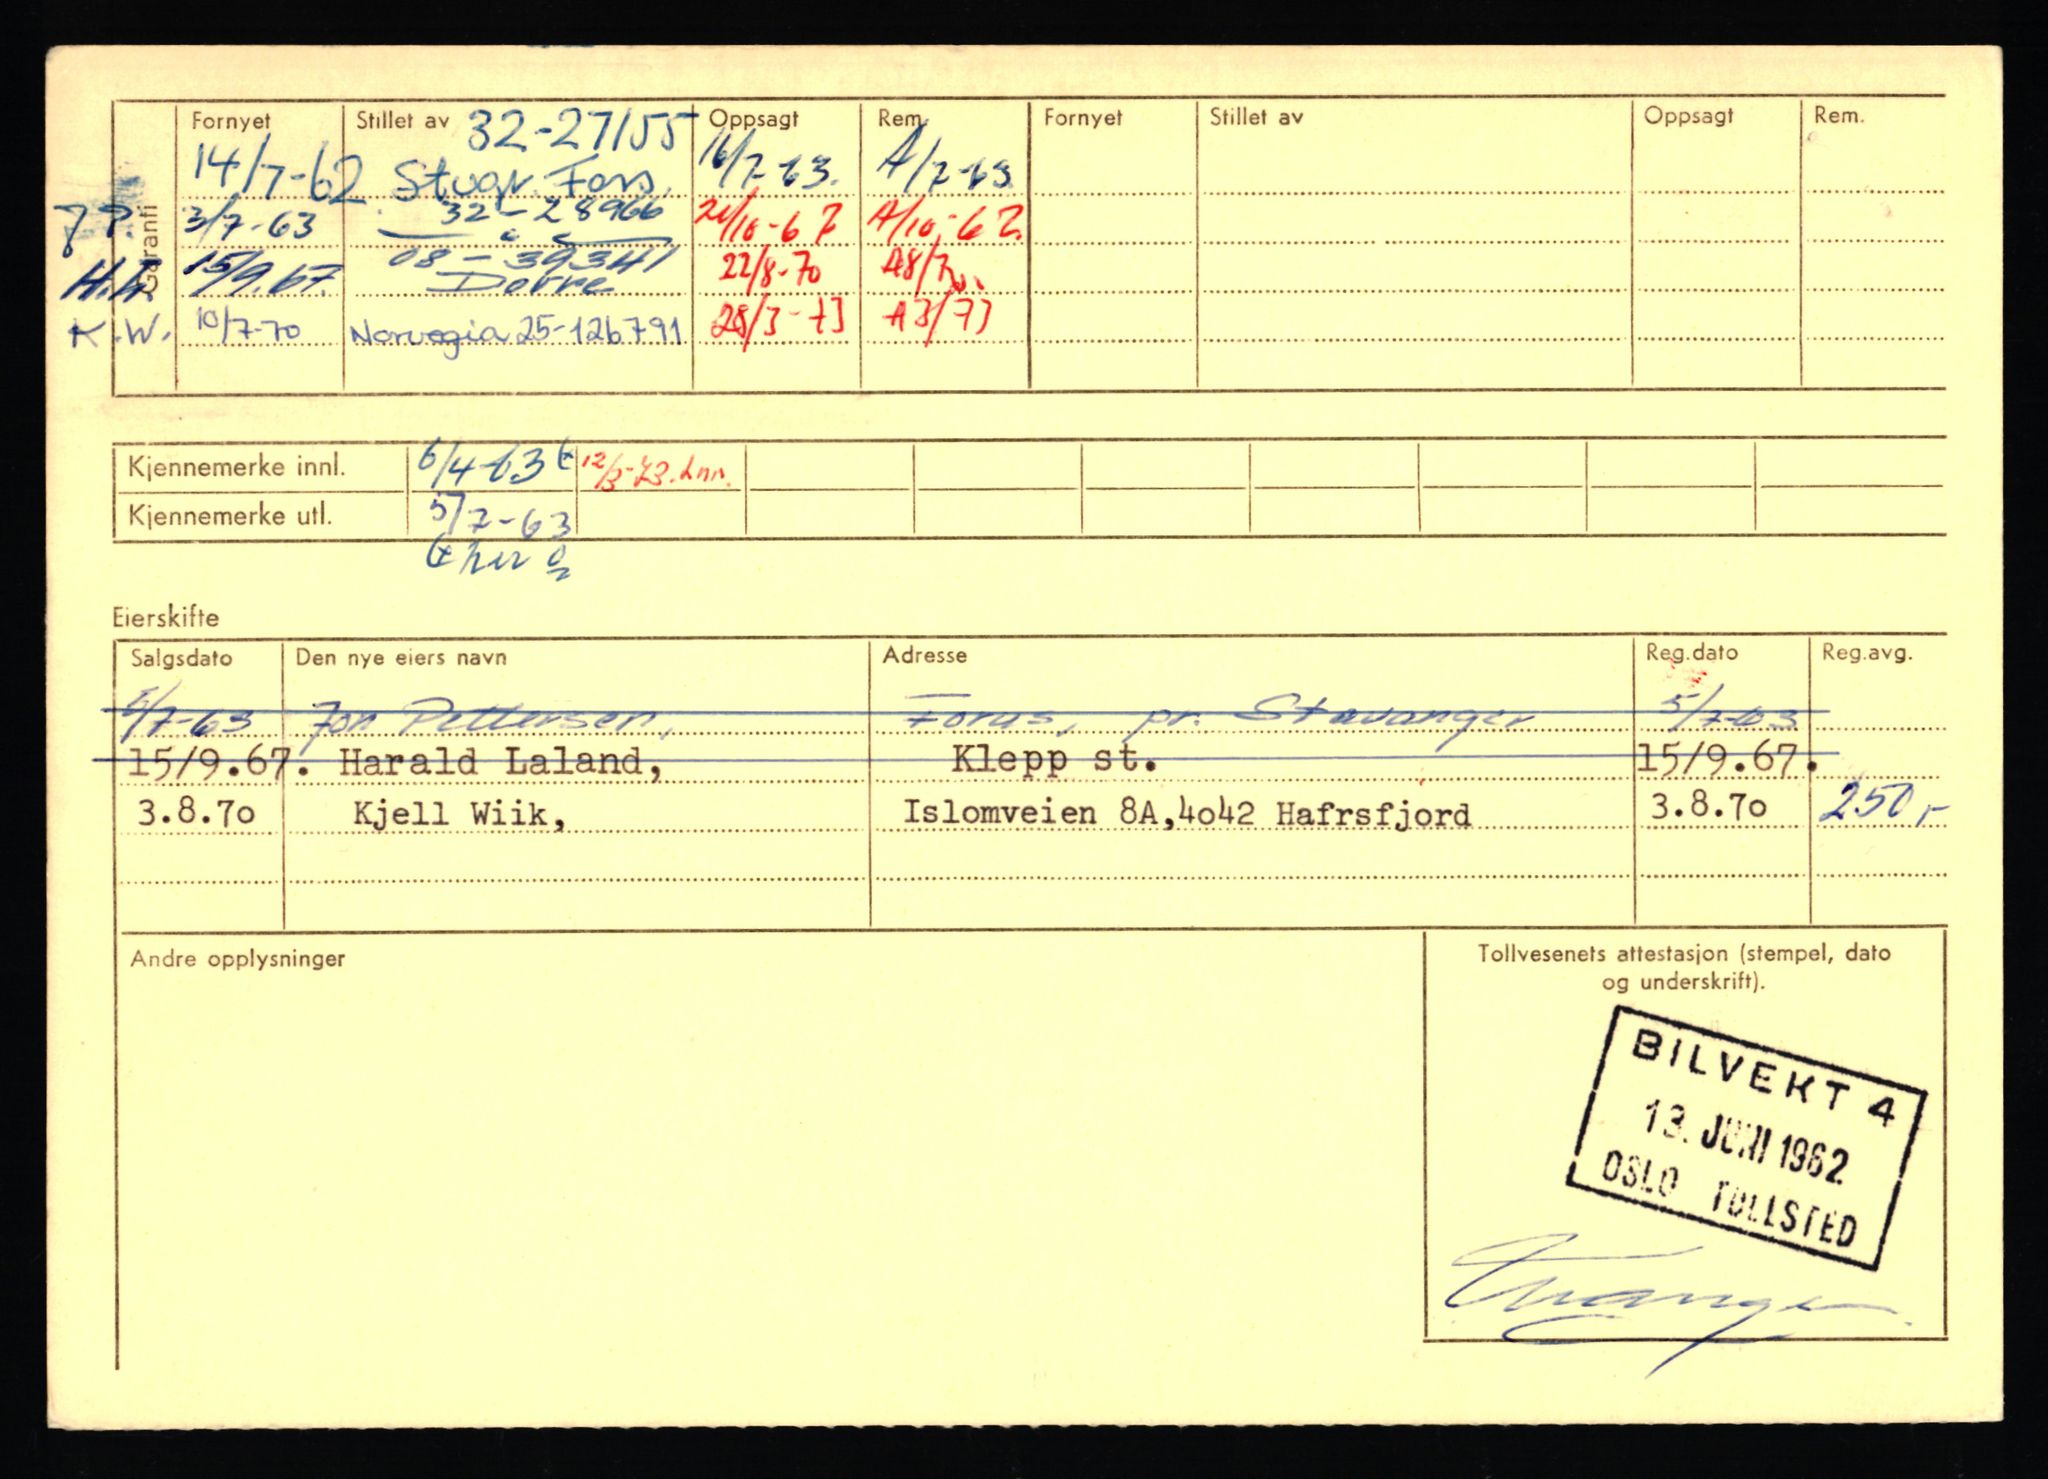 Garanti
Fornyet Stillet av 32-27155 Oppsagt Rem. Fornyet Stillet av Oppsagt Rem.
14/7-62 Stvgr. Fors. 16/7-63. A/7-63
J.P. 3/7-63 32-28966 A/10-67.
15/9.67. 08-39341 22/8-70
Dovre
K.W. 10/7-70 Norvegia 25-126791 28/3-73 A3/73
Kjennemerke innl. 6/4-63 12/3-73.
Kjennemerke utl. 5/7-63
Eierskifte
Salgsdato Den nye eiers navn Adresse Reg.dato Reg.avg.
5/7-63 Jon Pettersen, Forus, pr. Stavanger 5/7-63
15/9.67. Harald Laland, Klepp st. 15/9.67.
3.8.7o Kjell Wiik, Islomveien 8A,4o42 Hafrsfjord 3.8.7o 250,-
Andre opplysninger
Tollvesenets attestasjon (stempel, dato
og underskrift).
BILVEKT 4
13. JUNI 1962
OSLO TOLLSTED